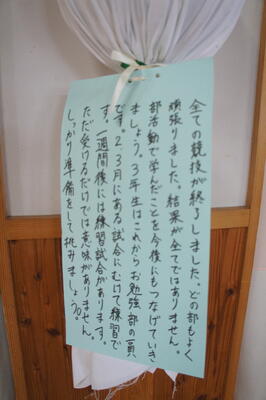 全ての競技が終了しました。どの部もよく
頑張りました。結果が全てではありません。
部活動で学んだことを今後にもつなげていき
ましょう。3年生はこれからお勉強部の一員
です。2、3月にある試合にむけて練習で
す。一週間後には練習試合があります。
ただ受けるだけでは意味がありません。
しっかり準備をして挑みましょう。